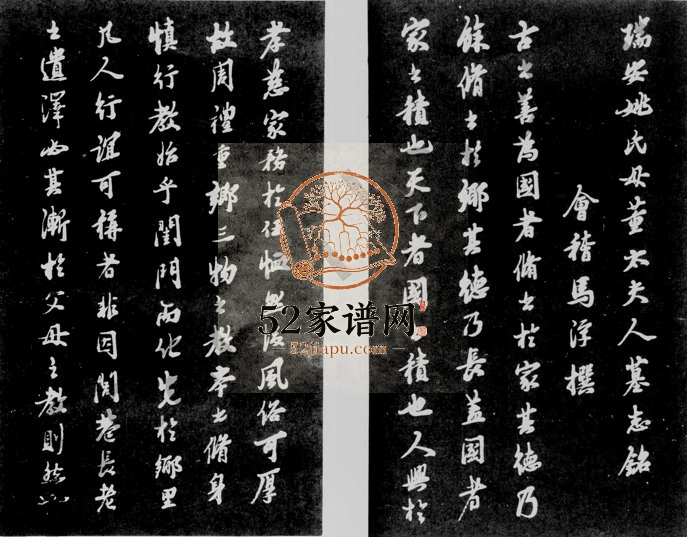 瑞安姚氏母董太夫人墓志銘
會稽馬浮撰
古之善為國者脩之於家其德乃
餘脩之於鄉其德乃長蓋國者
家之積也天下者國之積也人興於
孝慈家務於任恤然後風俗可厚
故周禮重鄉三物之教本之脩身
慎行教始乎閨門而化先於鄉里
凡人行誼可稱者非因閭巷長老
之遺澤必其漸於父母之教則然也
52家谱网
52jiapu.com